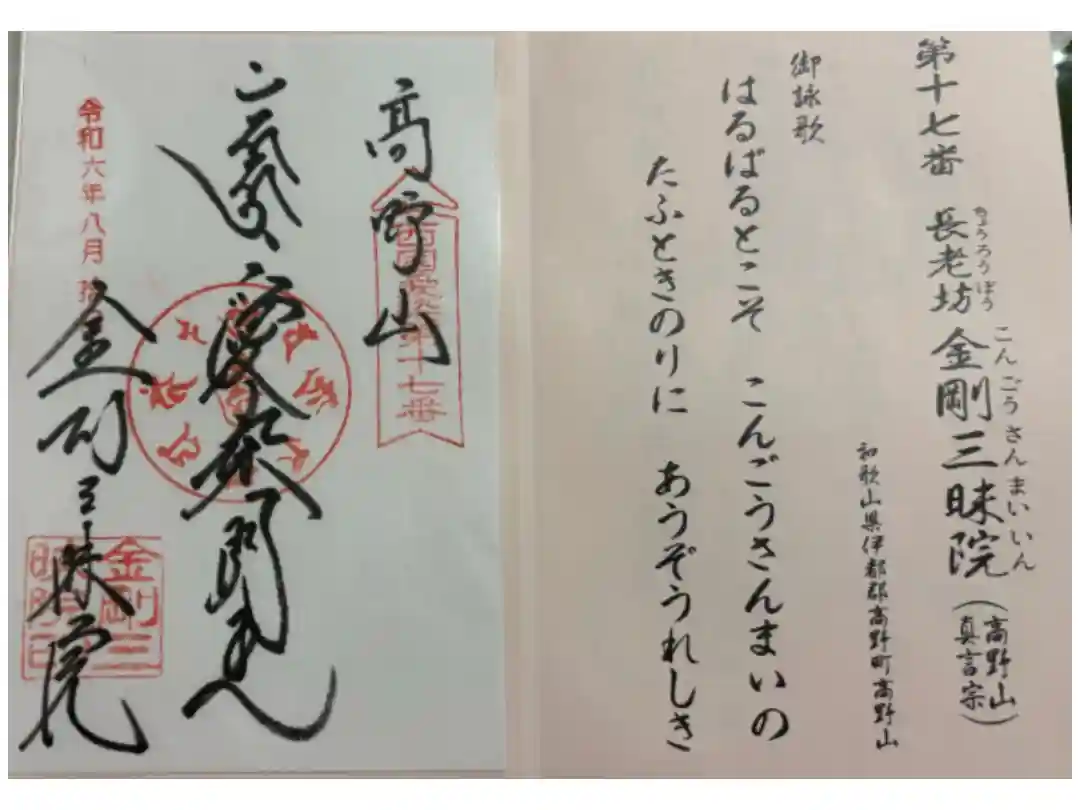 第十七番 長老坊 金剛三昧院 (高野山真言宗)
ちょうろうぼう こんごうさんまいいん
和歌山県伊都郡高野町高野山
御詠歌
はるばるとこそ こんごうさんまいの
たふときのりに あうぞうれしき
高野山
西国愛染第十七番
愛染明王
金剛三昧院
令和六年八月拾
金剛三
昧院印